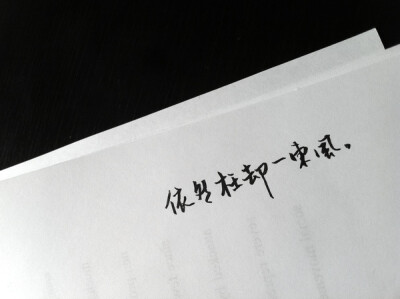 依然枉却一东风。